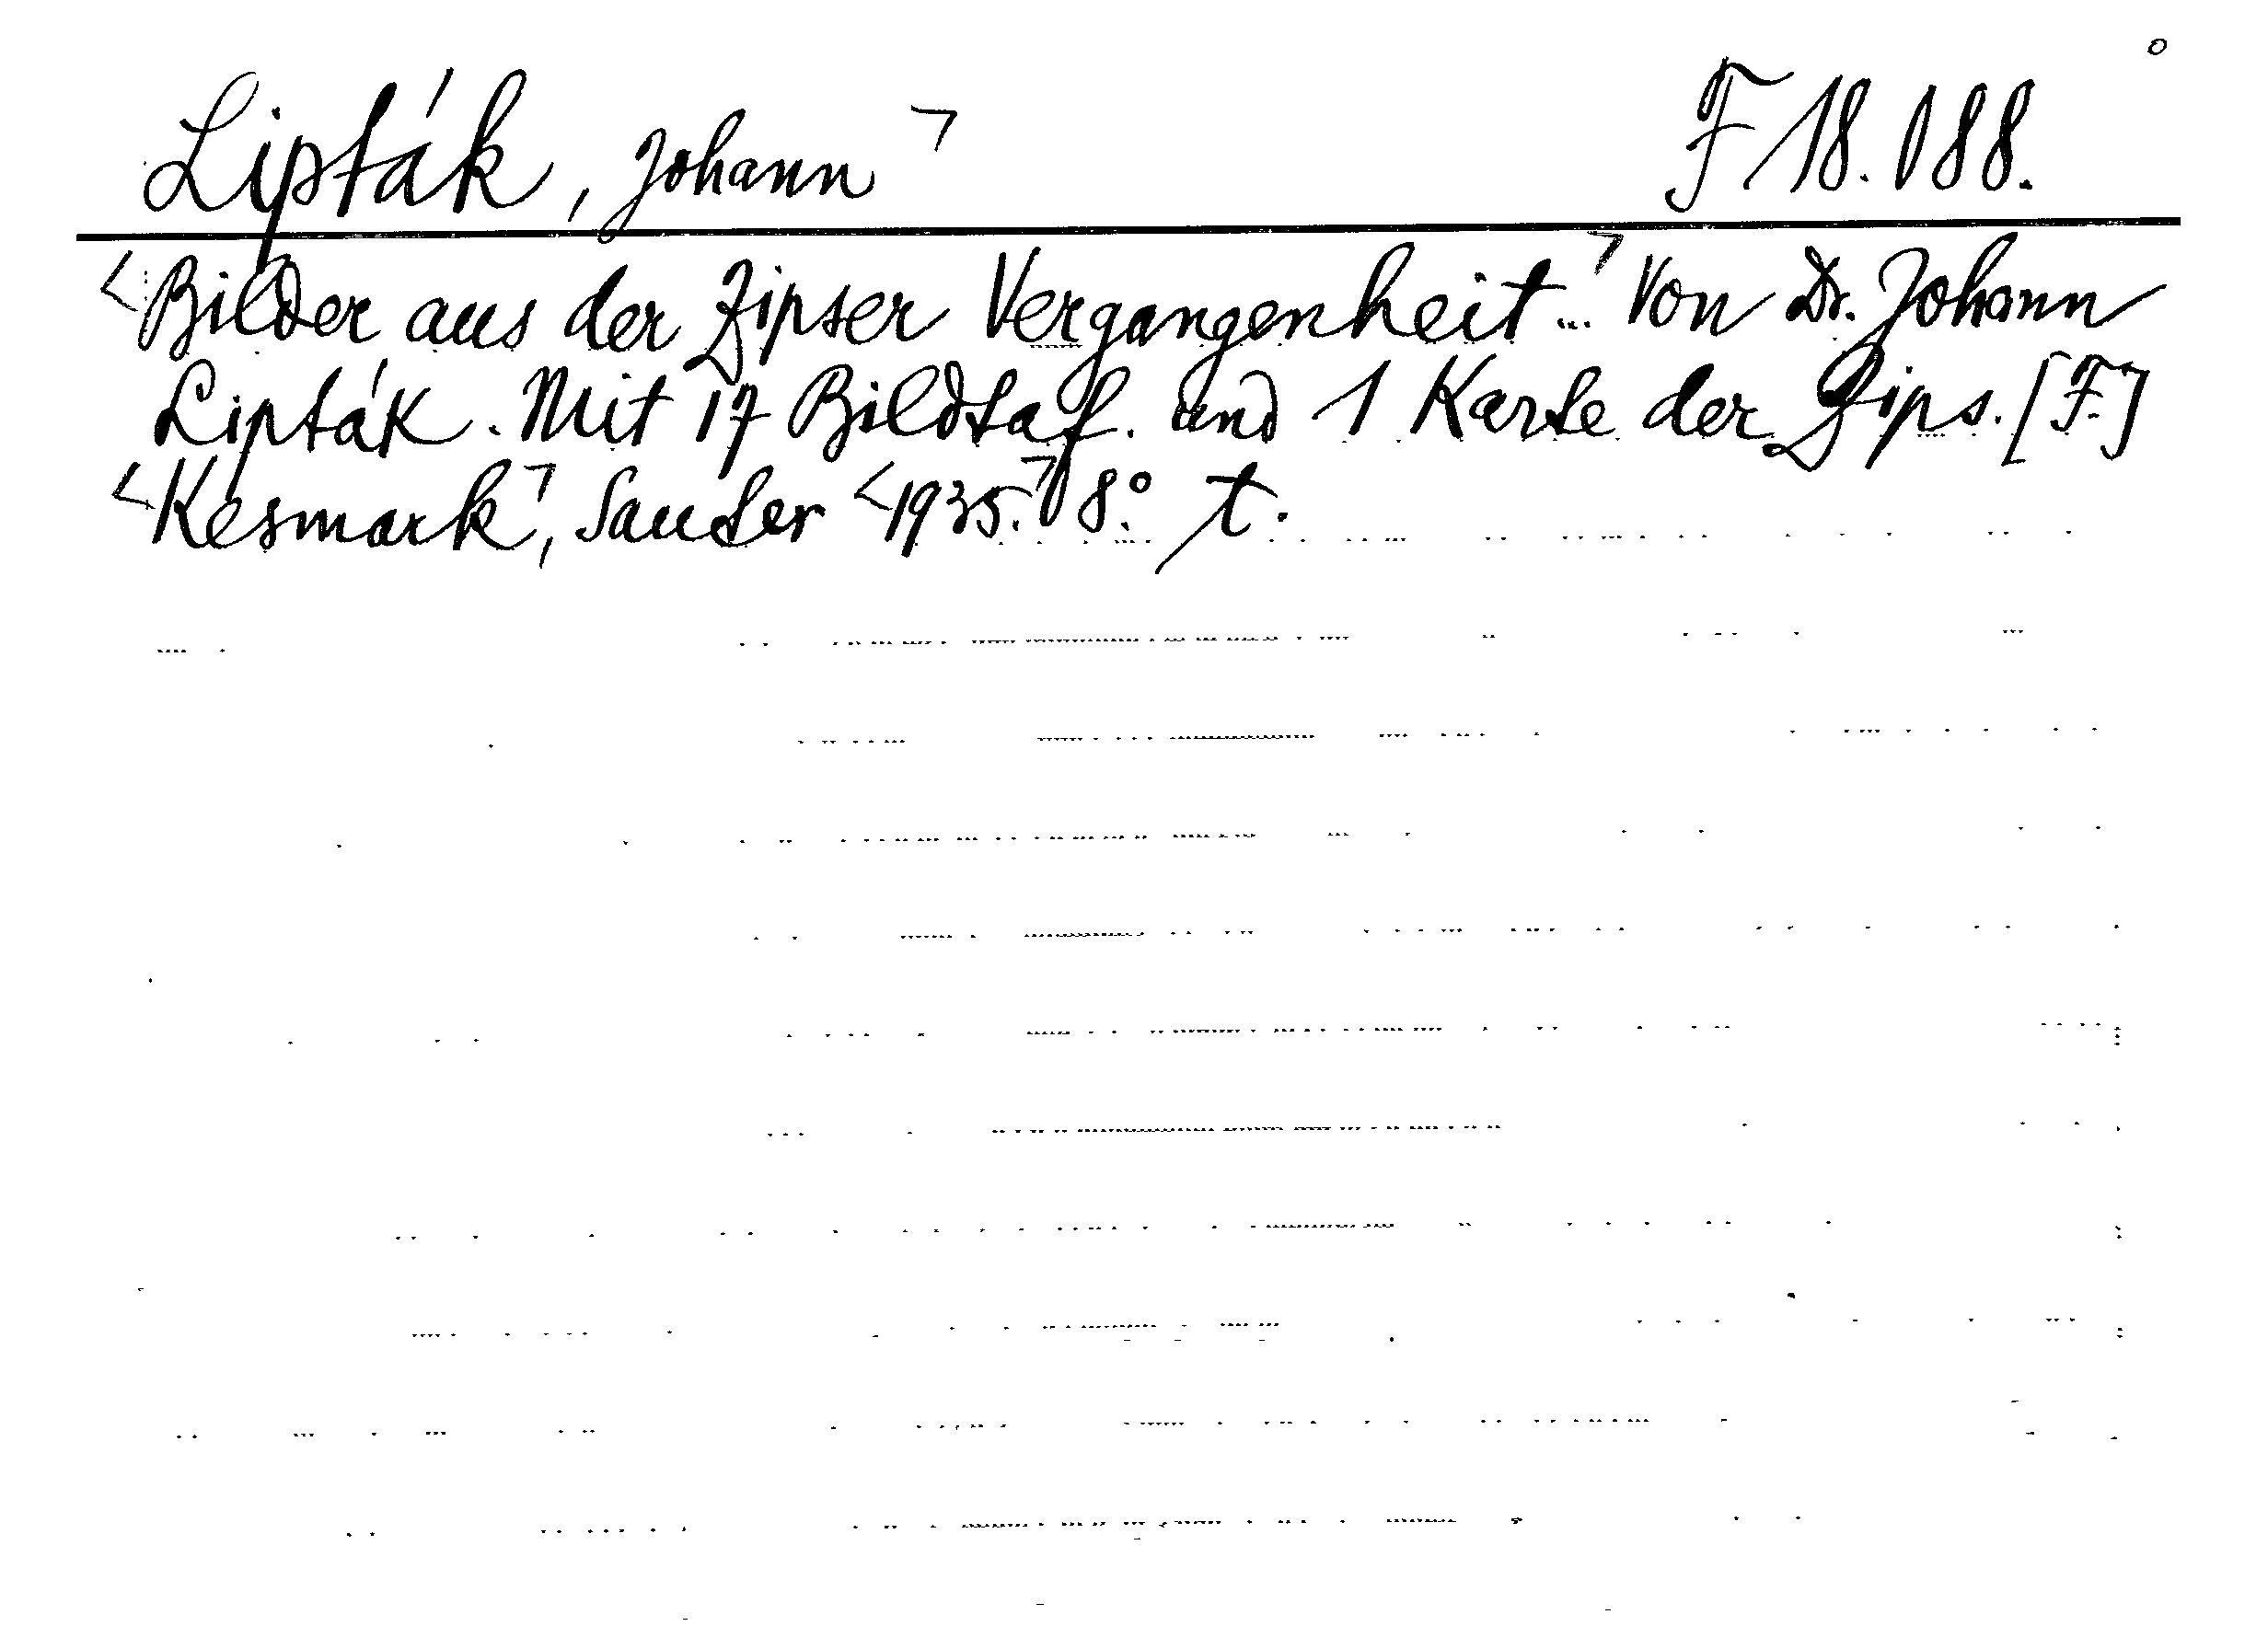 Lipták, Johann ⌝ F 18.088.
<Bilder aus der Zipser Vergangenheit...⌝ Von Dr. Johann
Lipták. Mit 17 Bildtaf. und 1 Karte der Zips. [F.]
<Kesmark⌝, Sauter <1935.⌝ 8.° t.